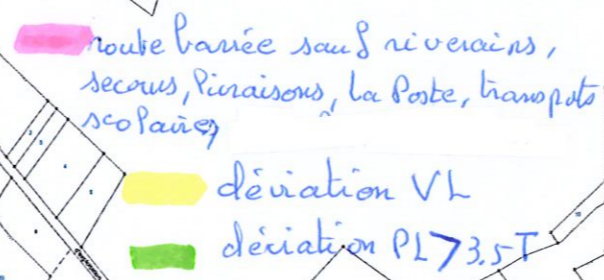 route barrée sauf riverains,
secours, livraisons, La Poste, transports
scolaires
déviation VL
déviation PL > 3.5T